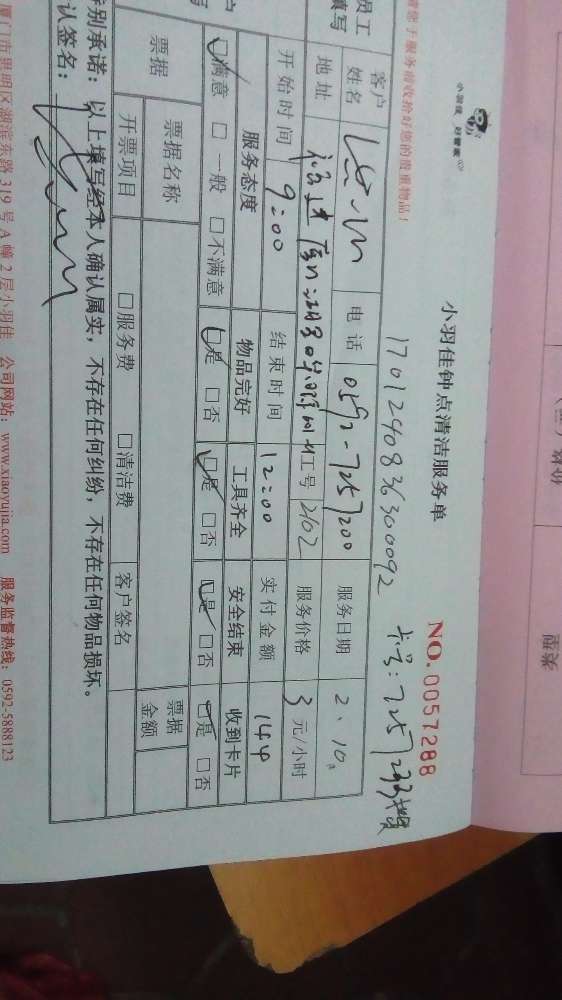 小羽佳 好管家
小羽佳钟点清洁服务单
NO. 0057288
1701240836300092
卡号:7257293
请您于服务前收拾好您的贵重物品!
员工
填写
客户
姓名
电话 0592-7257200 服务日期 2、10
地址 福建厦门
工号 2102 服务价格 3 元/小时
开始时间 9:00 结束时间 12:00 实付金额 144
服务态度 物品完好 工具齐全 安全结束 收到卡片
□满意 □一般 □不满意 □是 □否 □是 □否 □是 □否 □是 □否
票据 票据名称 票据
金额
开票项目 □服务费 □清洁费 客户签名
特别承诺:以上填写经本人确认属实,不存在任何纠纷,不存在任何物品损坏。
认签名:
厦门市思明区湖滨东路 319 号 A 幢 2 层小羽佳 公司网站:www.xiaoyujia.com 服务监督热线:0592-5888123